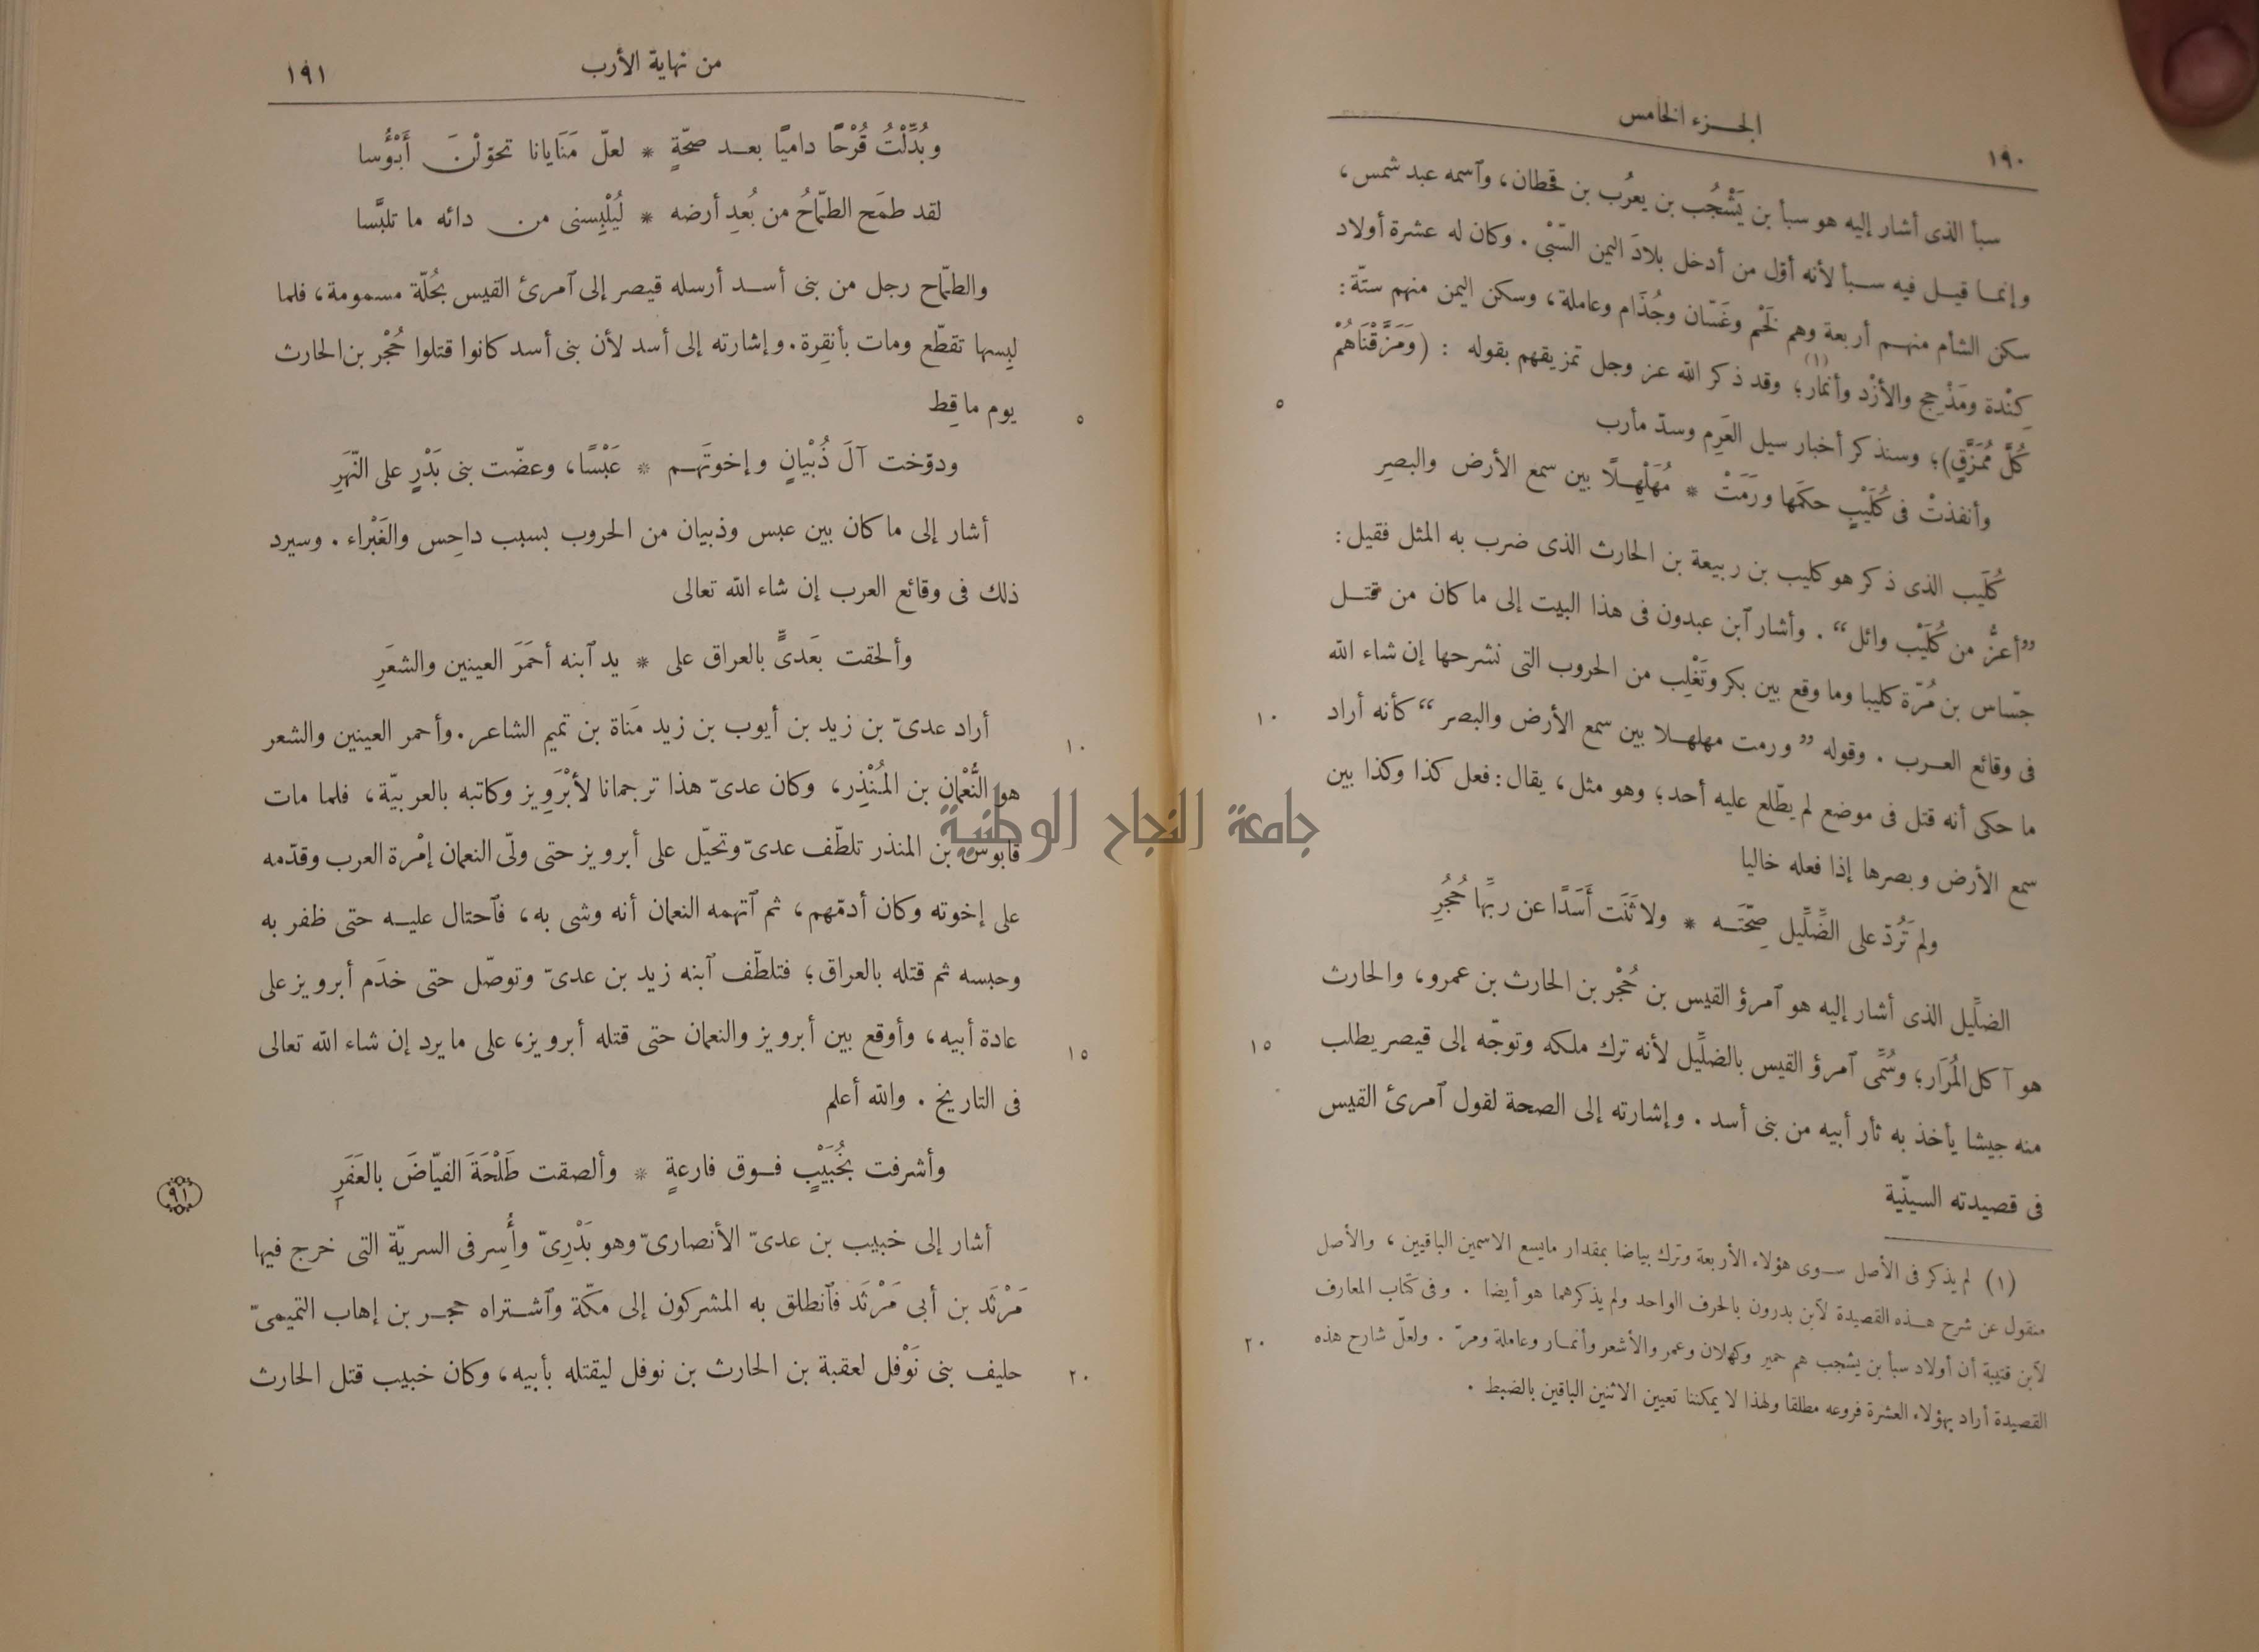 ١٩٠
الجـزء الخامس
سبأ الذى أشار إليه هو سبأ بن يَشْجُب بن يعرُب بن قحطان، وآسمه عبد شمس،
وإنمـا قيـل فيه سـبأ لأنه أوّل من أدخل بلادَ اليمن السّبْى . وكان له عشرة أولاد
سكن الشأم منهـم أربعة وهم لَخْم وغَسّان وجُذَام وعاملة، وسكن اليمن منهم ستّة :
كِنْدة ومَذْحِج والأزْد وأنمار(١)؛ وقد ذكر الله عز وجل تمزيقهم بقوله : (وَمَزَّقْنَاهُمْ
٥
كُلَّ مُمَزَّقٍ)؛ وسنذكر أخبار سيل العَرِم وسدّ مأرب
وأنفذتْ فى كُلَيْبٍ حكمَها ورَمَتْ * مُهَلْهِـلًا بين سمع الأرض والبصِرِ
كُلَيب الذى ذكر هو كليب بن ربيعة بن الحارث الذى ضرب به المثل فقيل :
”أعزُّ من كُلَيْب وائل“ . وأشار آبن عبدون فى هذا البيت إلى ما كان من قتـل
جسّاس بن مُرّة كليبا وما وقع بين بكر وتَغْلِب من الحروب التى نشرحها إن شاء الله
١٠
فى وقائع العـرب . وقوله ”ورمت مهلهـلا بين سمع الأرض والبصر“ كأنه أراد
ما حكى أنه قتل فى موضع لم يطّلع عليه أحد؛ وهو مثل، يقال : فعل كذا وكذا بين
سمع الأرض وبصرها إذا فعله خاليا
ولم تَرُدّ على الضِّلِّيل صِحّتَـه * ولا ثَنَت أَسَدًا عن ربِّها حُجُرِ
الضلِّيل الذى أشار إليه هو آمرؤ القيس بن حُجْر بن الحارث بن عمرو، والحارث
هو آكل المُرَار؛ وسُمِّى آمرؤ القيس بالضلِّيل لأنه ترك ملكه وتوجّه إلى قيصر يطلب
١٥
منه جيشا يأخذ به ثأر أبيه من بنى أسد . وإشارته إلى الصحة لقول آمرئ القيس
فى قصيدته السينّية
(١) لم يذكر فى الأصل سـوى هؤلاء الأربعة وترك بياضا بمقدار ما يسع الاسمين الباقيين، والأصل
منقول عن شرح هـذه القصيدة لآبن بدرون بالحرف الواحد ولم يذكرهما هو أيضا . وفى كتاب المعارف
لآبن قتيبة أن أولاد سبأ بن يشجب هم حمير وكهلان وعمر والأشعر وأنمـار وعاملة ومرّ . ولعلّ شارح هذه
٢٠
القصيدة أراد بهؤلاء العشرة فروعه مطلقا ولهذا لا يمكننا تعيين الاثنين الباقين بالضبط .
من نهاية الأرب
١٩١
وبُدِّلْتُ قُرْحًا داميًا بعـد صحّةٍ * لعلّ مَنَايانا تحوّلْنَ أَبْؤُسا
لقد طمَح الطمّاحُ من بُعدِ أرضه * لُيُلْبِسنى من دائه ما تلبَّسا
والطمّاح رجل من بنى أسـد أرسله قيصر إلى آمرئ القيس بحُلّة مسمومة، فلما
لبِسها تقطّع ومات بأنقِرة . وإشارته إلى أسد لأن بنى أسد كانوا قتلوا حُجْر بن الحارث
يوم ماقِط
٥
ودوّخت آلَ ذُبْيانٍ وإخوتَهـم * عَبْسًا، وعضّت بنى بَدْرٍ على النّهَرِ
أشار إلى ما كان بين عبس وذبيان من الحروب بسبب داحِس والغَبْراء . وسيرد
ذلك فى وقائع العرب إن شاء الله تعالى
وألحقت بعَدىٍّ بالعراق على * يد آبنه أحمَرَ العينين والشعَرِ
أراد عدىّ بن زيد بن أيوب بن زيد مَناة بن تميم الشاعر . وأحمر العينين والشعر
١٠
هو النُّعْمان بن المُنْذِر، وكان عدىّ هذا ترجمانا لأبْرَوِيز وكاتبه بالعربيّة، فلما مات
قابوس بن المنذر تلطّف عدىّ وتحيّل على أبرويز حتى ولّى النعمان إمْرة العرب وقدّمه
على إخوته وكان أدمّهم، ثم آتهمه النعمان أنه وشى به، فآحتال عليـه حتى ظفر به
وحبسه ثم قتله بالعراق؛ فتلطّف آبنه زيد بن عدىّ وتوصّل حتى خدَم أبرويز على
عادة أبيه، وأوقع بين أبرويز والنعمان حتى قتله أبرويز، على ما يرد إن شاء الله تعالى
١٥
فى التاريخ . والله أعلم
وأشرفت بخُبَيْبٍ فـوق فارعةٍ * وألصقت طَلْحَةَ الفيّاضَ بالعَفَرِ
٩١
أشار إلى خبيب بن عدىّ الأنصارىّ وهو بَدْرِىّ وأُسِر فى السريّة التى خرج فيها
مَرْثَد بن أبى مَرْثَد فآنطلق به المشركون إلى مكّة وآشـتراه حجـر بن إهاب التميمىّ
حليف بنى نَوْفل لعقبة بن الحارث بن نوفل ليقتله بأبيه، وكان خبيب قتل الحارث
٢٠
جامعة النجاح الوطنية